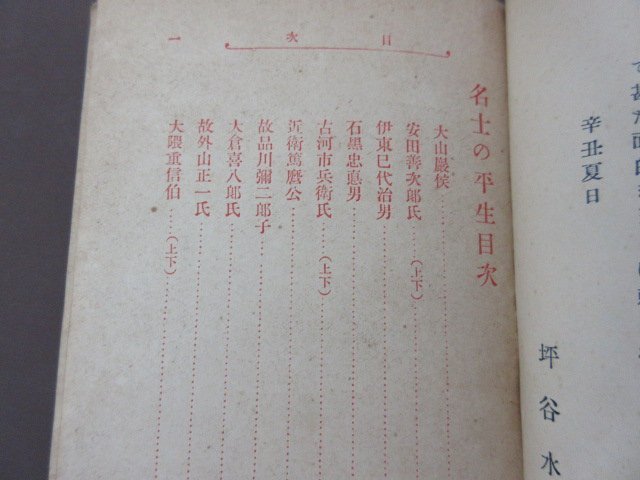 て甚だ面白き
辛丑夏日
坪谷水
目次
一
名士の平生目次
大山巖侯
安田善次郎氏……（上下）
伊東巳代治男
石黒忠悳男
古河市兵衛氏……（上下）
近衛篤麿公
故品川彌二郎子
大倉喜八郎氏
故外山正一氏
大隈重信伯……（上下）